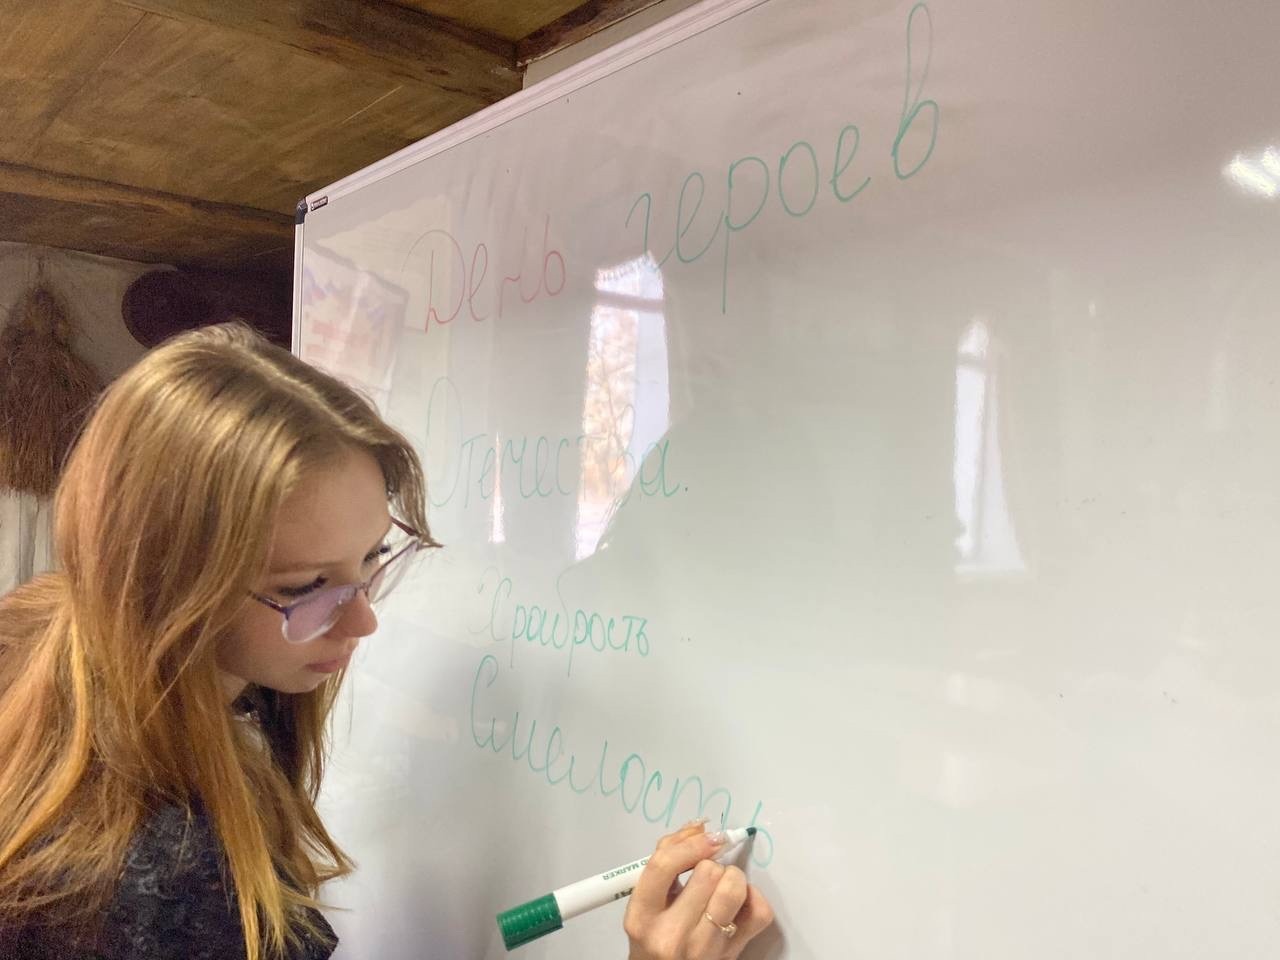 День героев
Отечества.
Храбрость
Смелость
MARKER